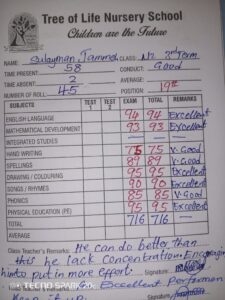 Tree of Life Nursery School
Children are the Future
NAME: Sulayman Jammeh CLASS: N2 3rd Term
TIME PRESENT: 58 CONDUCT: Good
TIME ABSENT: 2 AVERAGE:
NUMBER OF ROLL: 45 POSITION: 19th
SUBJECTS TEST 1 TEST 2 EXAM TOTAL REMARKS
ENGLISH LANGUAGE 94 94 Excellent
MATHEMATICAL DEVELOPMENT 93 93 Excellent
INTEGRATED STUDIES
HAND WRITING 75 75 V-Good
SPELLINGS 89 89 V-Good
DRAWING / COLOURING 95 95 Excellent
SONGS / RHYMES 90 90 Excellent
PHONICS 85 85 V-Good
PHYSICAL EDUCATION (PE) 95 95 Excellent
TOTAL 716 716
AVERAGE
Class Teacher's Remarks: He can do better than
this he lack concentration. Encouraging
him to put in more effort. Signature:
Excellent Performan
Keep it up. Signature
TECNO SPARK